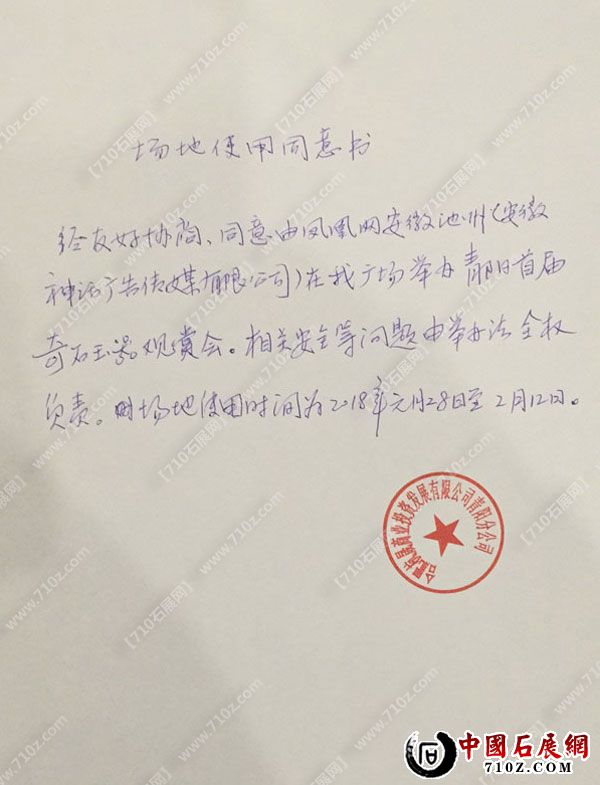 场地使用同意书
经友好协商、同意由凤凰网安徽池州(安徽
神话广告传媒有限公司)在我广场举办青阳首届
奇石玉器观赏会。相关安全等问题由举办法全权
负责。场地使用时间为2018年元月28日至2月12日。
商业投资发展有限公司青阳分公司
中國石展網
710z.com
【710石展网】
www.710z.com